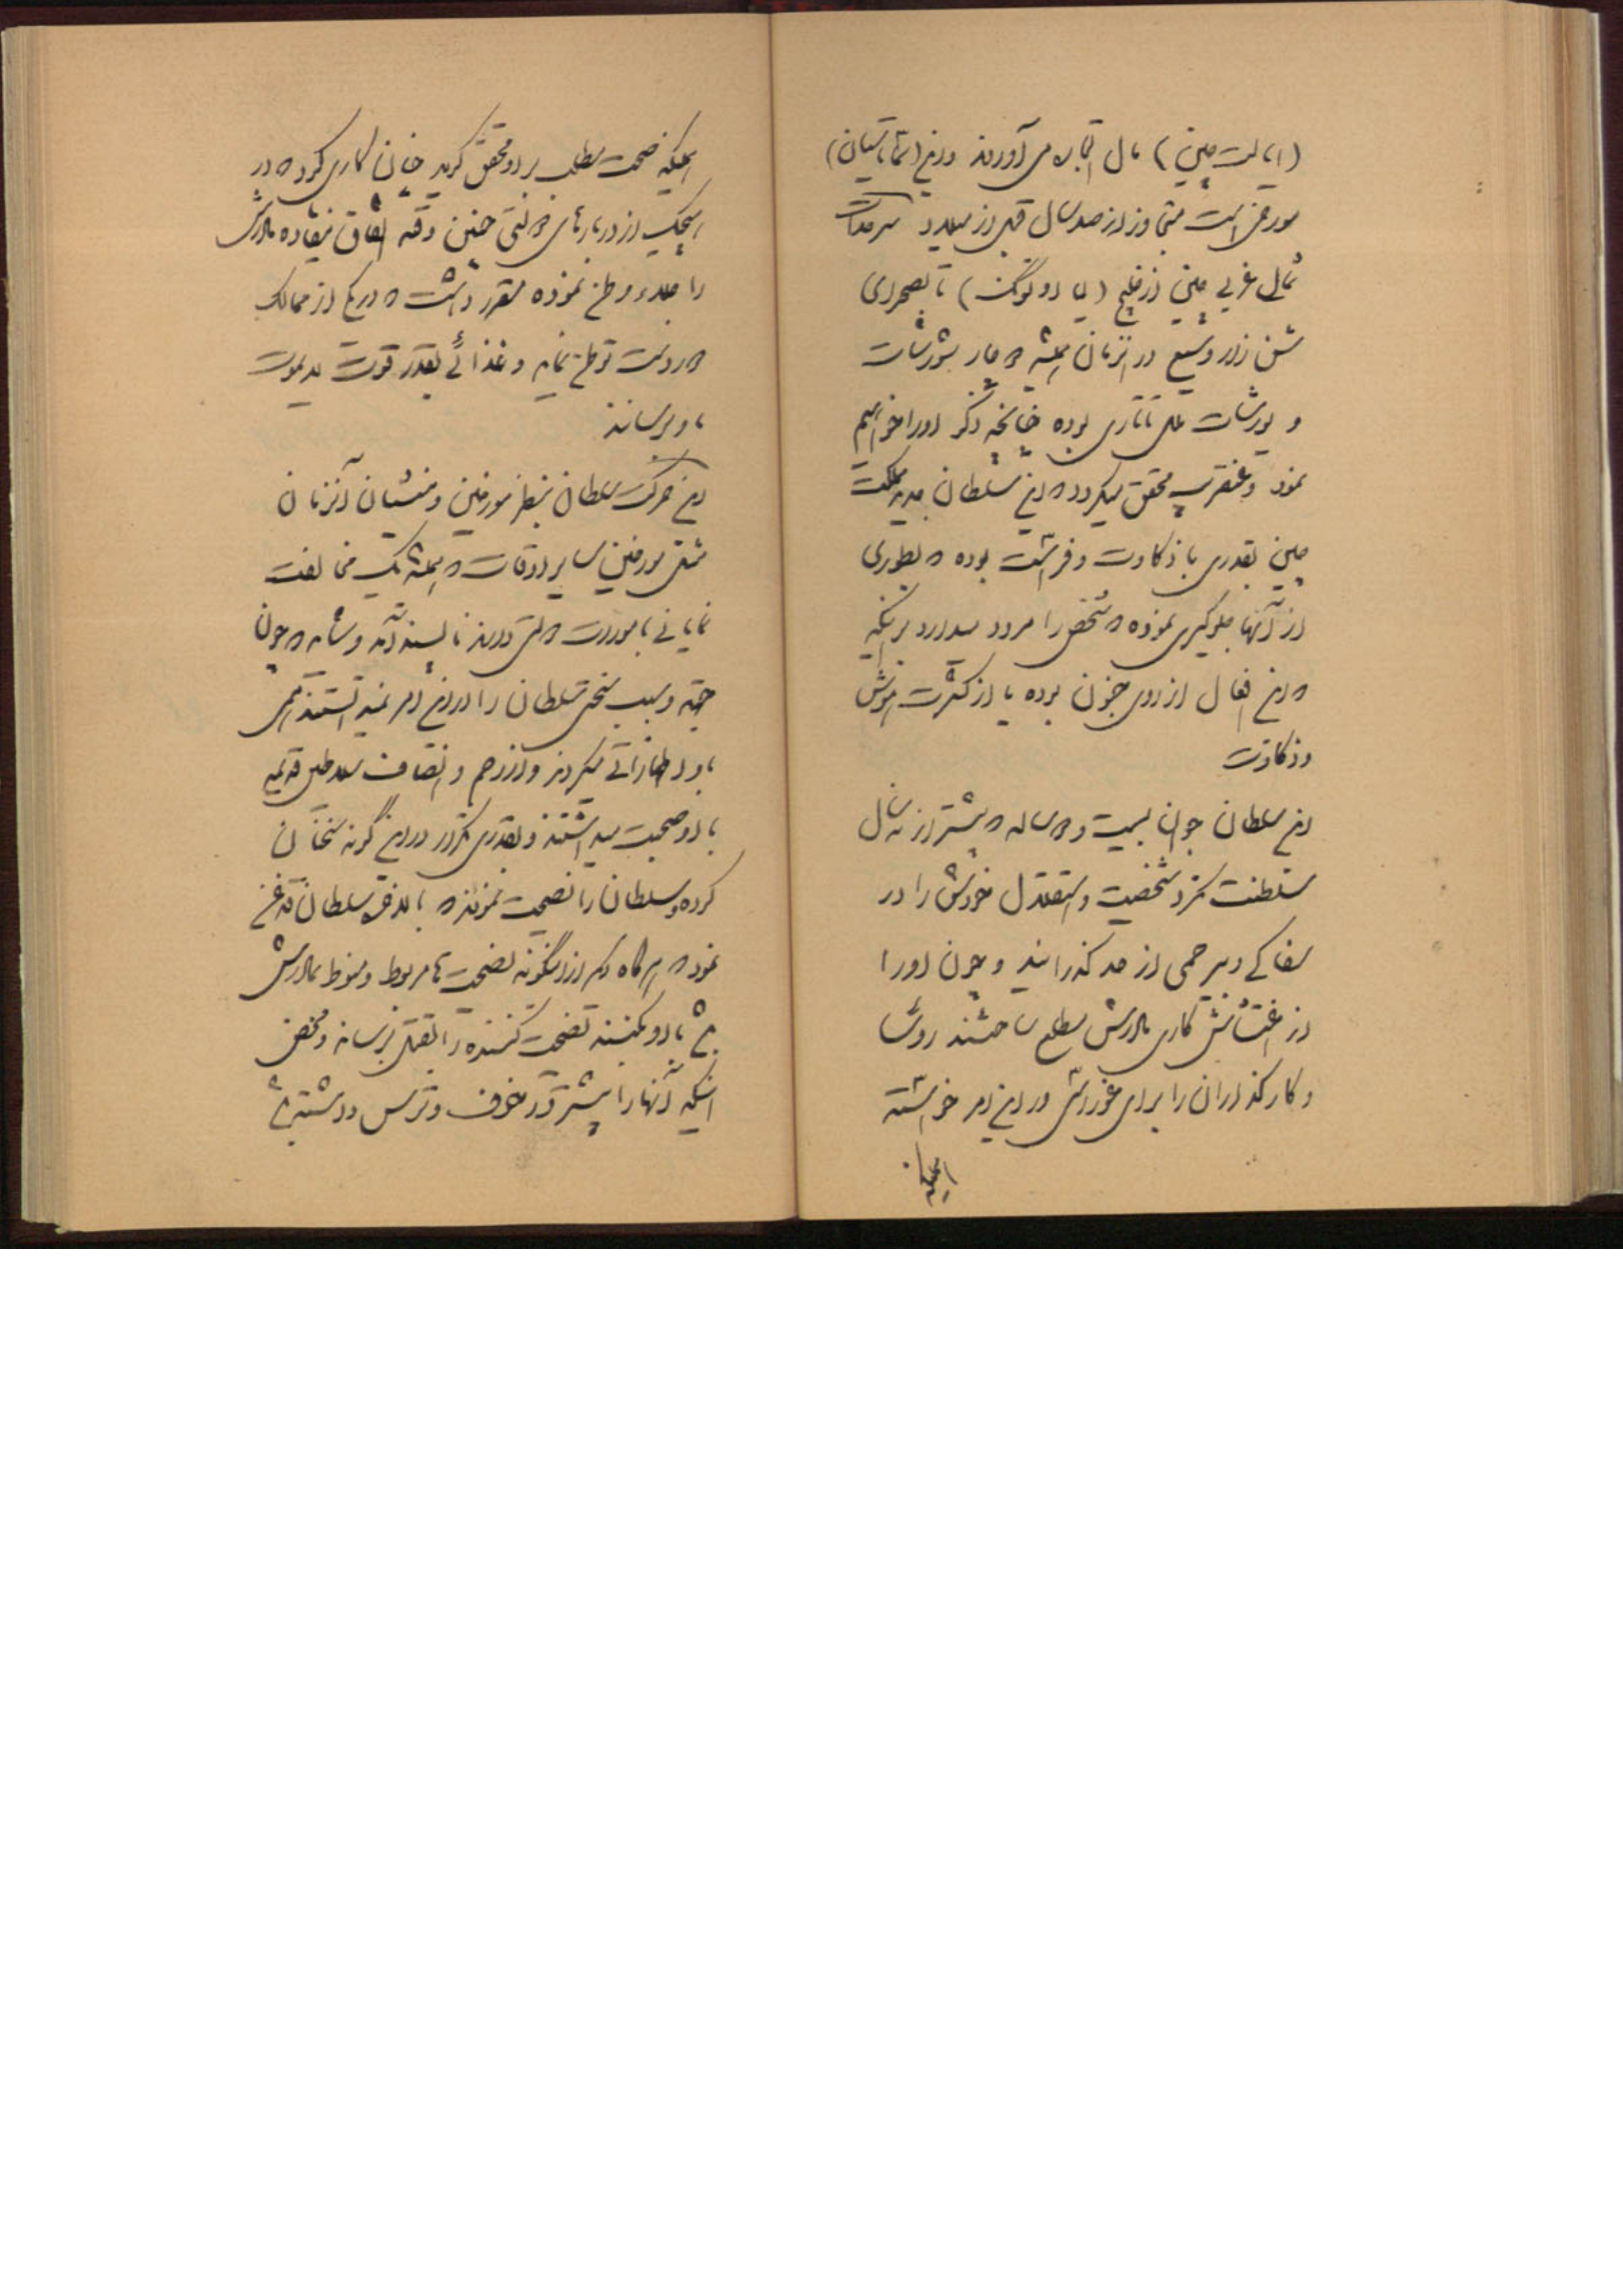 (ایالت چین) مال التجاره می آوردند و این (تماتسیان)
مورخ است متجاوز از صد سال قبل از میلاد سرحدات
شمالی غربی چین از خلیج (لیا اوتونگ) تا بصحرای
شن زار وسیع در آنزمان همیشه دچار شورشات
و یورشات ملل تاتاری بوده چنانچه ذکر او را خواهیم
نمود و عنقریب محقق میگردد که این سلطان جدید مملکت
چین بقدری با ذکاوت و فراست بوده که بطوری
از آنها جلوگیری نموده که شخص را مردد میدارد بر اینکه
که این افعال از روی جنون بوده یا از کثرت هوش
و ذکاوت
این سلطان جوان بیست و دو ساله که بیشتر از نه سال
سلطنت نکرد شخصیت و استقلال خودش را در
سفاکی و بیرحمی از حد گذرانید و چون او را
از اغتشاش کاری مادرش مطلع ساختند روسا
و کارگذاران را برای غوررسی در این امر خواسته
همینکه
همینکه صحت مطلب بر او محقق گردید چنان کاری کرد که در
هیچیک از دربارهای دولتی چنین وقعه اتفاق نیفتاده مادرش
را جلاء وطن نموده مقرر داشت که در یکی از ممالک
دوردست توطن نماید و غذائی بقدر قوت لایموت
باو برسانند
این حرکت سلطان بنظر مورخین و منشیان آنزمان
مثل مورخین سایر اوقات که همیشه یک مخالفت
نمایانی با مورات دولتی دارند ناپسند آمد و شاید که چون
جهت و سبب سختی سلطان را در این امر نمیدانستند همی
باو اظهاراتی میکردند و از رحم و انصاف سلاطین قدیمه
با او صحبت میداشتند و بقدری تکرار در این گونه سخنان
کرده و سلطان را نصیحت نمودند که بالاخره سلطان قدغن
نمود که هر گاه دیگر از اینگونه نصیحت ها مربوط و منوط بمادرش
باشد باو بکنند نصیحت کننده را بقتل برساند و محض
اینکه آنها را بیشتر در خوف و ترس داشته باشد